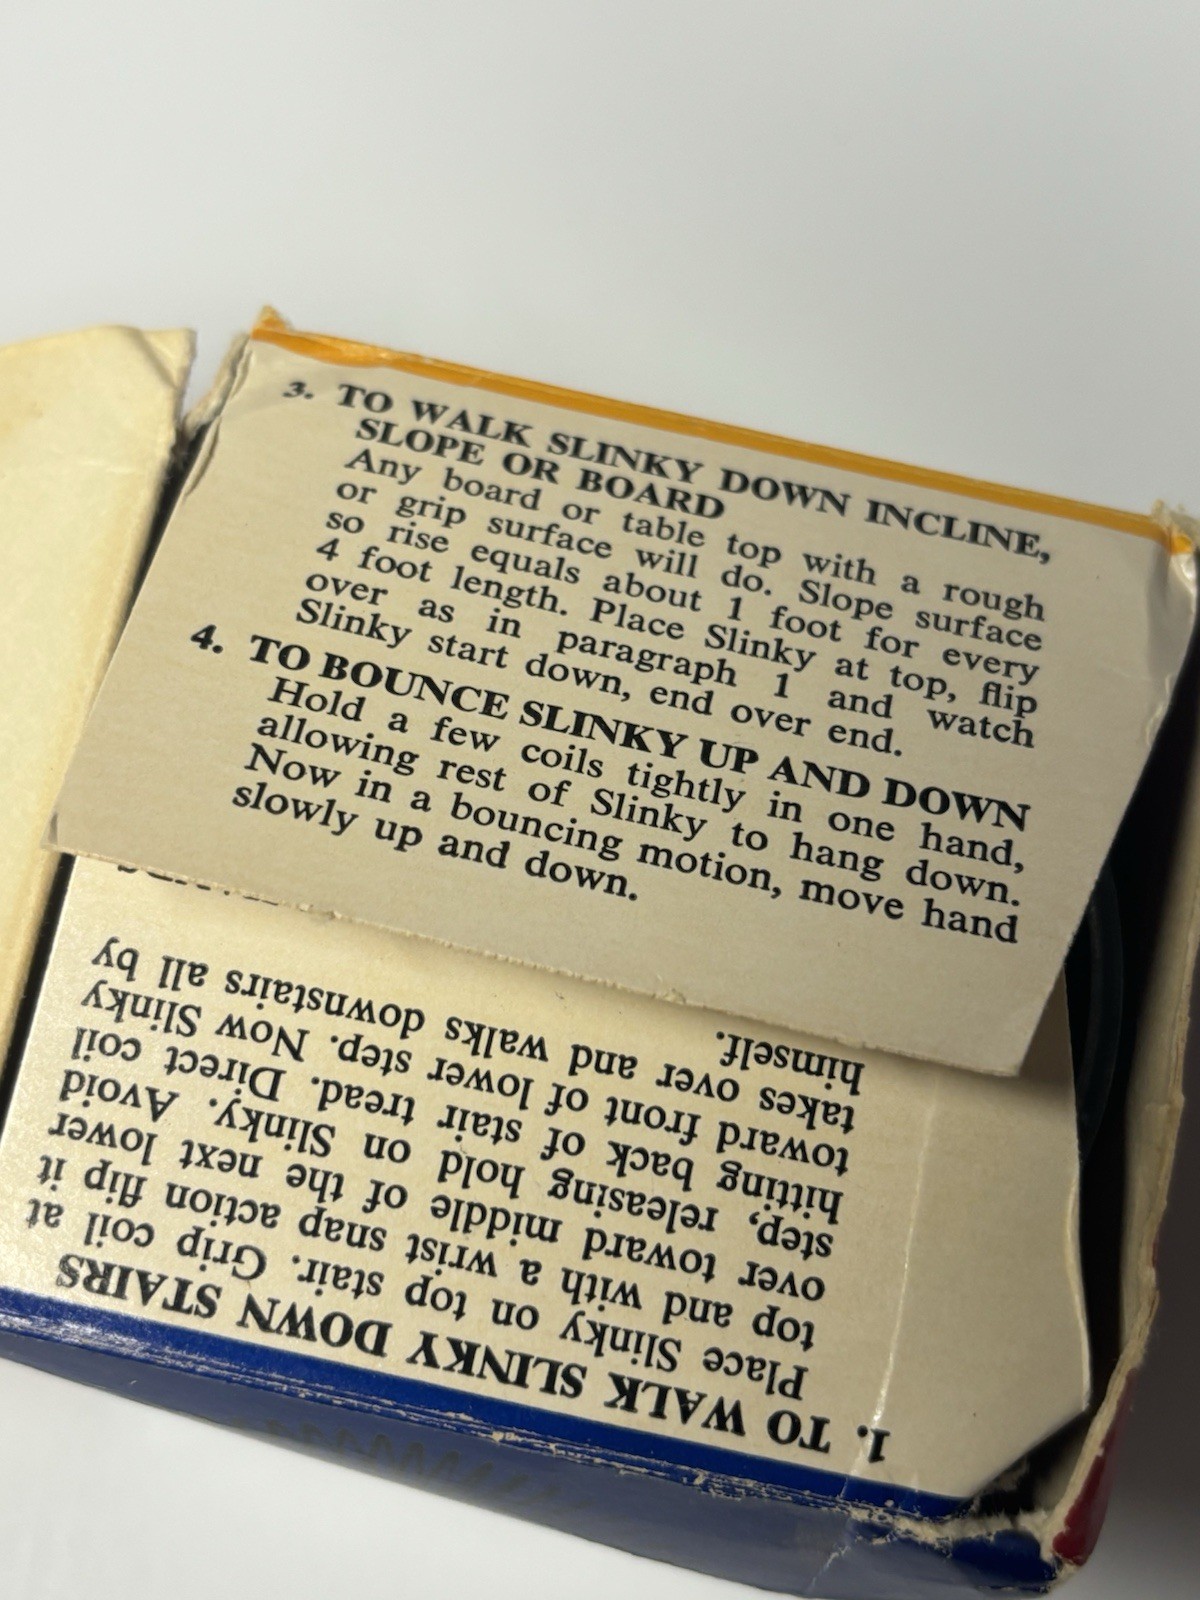 3. TO WALK SLINKY DOWN INCLINE,
SLOPE OR BOARD
Any board or table top with a rough
or grip surface will do. Slope surface
so rise equals about 1 foot for every
4 foot length. Place Slinky at top, flip
over as in paragraph 1 and watch
Slinky start down, end over end.
4. TO BOUNCE SLINKY UP AND DOWN
Hold a few coils tightly in one hand,
allowing rest of Slinky to hang down.
Now in a bouncing motion, move hand
slowly up and down.
1. TO WALK SLINKY DOWN STAIRS
Place Slinky on top stair. Grip coil at
top and with a wrist snap action flip it
over toward middle of the next lower
step, releasing hold on Slinky. Avoid
hitting back of stair tread. Direct coil
toward front of lower step. Now Slinky
takes over and walks downstairs all by
himself.